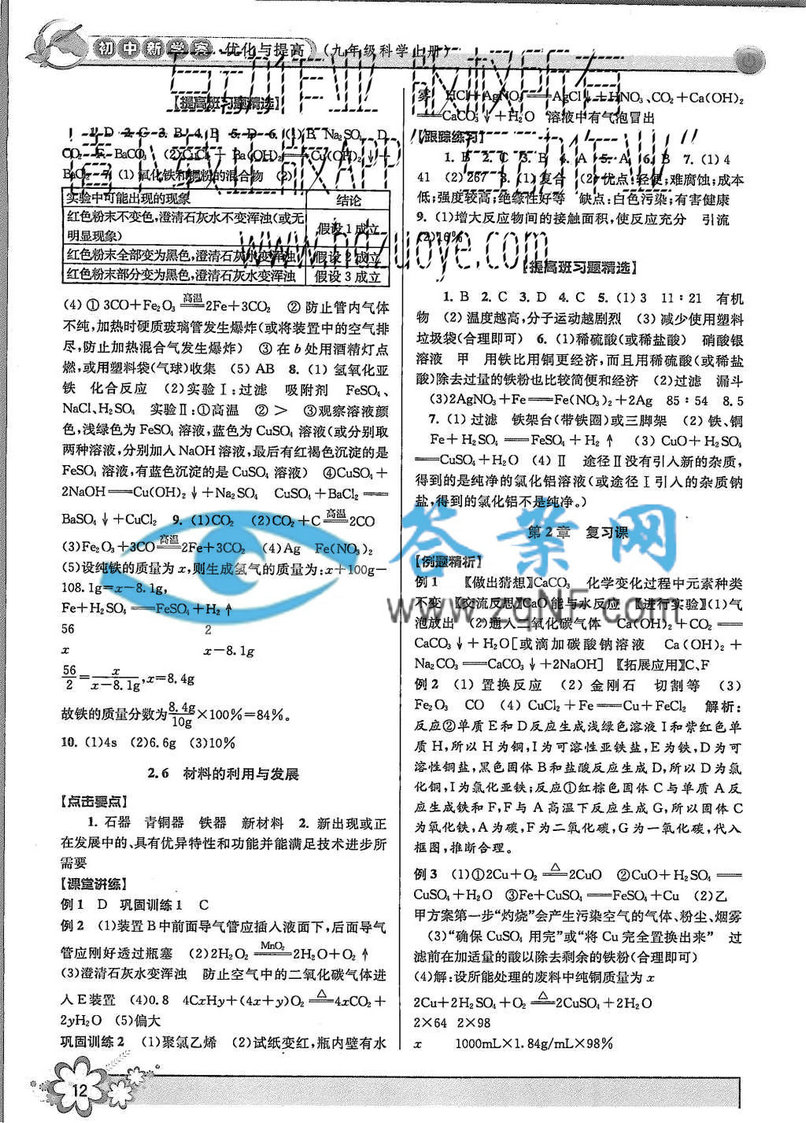 初中新学案 优化与提高 (九年级科学上册)
【提高班习题精选】
1. D 2. C 3. B 4. B 5. D 6. (1)B Na₂SO₄ D
CO₂ E BaCO₃
7. (1)氧化铁和 的混合物 (2)
实验中可能出现的现象 结论
红色粉末不变色,澄清石灰水不变浑浊(或无
明显现象) 假设1成立
红色粉末全部变为黑色,澄清石灰水变浑浊 假设2成立
红色粉末部分变为黑色,澄清石灰水变浑浊 假设3成立
(4)①3CO+Fe₂O₃ ══高温══ 2Fe+3CO₂ ②防止管内气体
不纯,加热时硬质玻璃管发生爆炸(或将装置中的空气排
尽,防止加热混合气发生爆炸) ③在b处用酒精灯点
燃,或用塑料袋(气球)收集 (5)AB 8. (1)氢氧化亚
铁 化合反应 (2)实验Ⅰ:过滤 吸附剂 FeSO₄、
NaCl、H₂SO₄ 实验Ⅱ:①高温 ②> ③观察溶液颜
色,浅绿色为FeSO₄溶液,蓝色为CuSO₄溶液(或分别取
两种溶液,分别加入NaOH溶液,最后有红褐色沉淀的是
FeSO₄溶液,有蓝色沉淀的是CuSO₄溶液) ④CuSO₄+
2NaOH══Cu(OH)₂↓+Na₂SO₄ CuSO₄+BaCl₂══
BaSO₄↓+CuCl₂ 9. (1)CO₂ (2)CO₂+C ══高温══ 2CO
(3)Fe₂O₃+3CO ══高温══ 2Fe+3CO₂ (4)Ag Fe(NO₃)₂
(5)设纯铁的质量为x,则生成氢气的质量为:x+100g-
108.1g=x-8.1g,
Fe+H₂SO₄══FeSO₄+H₂↑
56 2
x x-8.1g
56/2=x/(x-8.1g),x=8.4g
故铁的质量分数为8.4g/10g×100%=84%。
10. (1)4s (2)6.6g (3)10%
2.6 材料的利用与发展
【点击要点】
1. 石器 青铜器 铁器 新材料 2. 新出现或正
在发展中的、具有优异特性和功能并能满足技术进步所
需要
【课堂讲练】
例1 D 巩固训练1 C
例2 (1)装置B中前面导气管应插入液面下,后面导气
管应刚好透过瓶塞 (2)2H₂O₂ ══MnO₂══ 2H₂O+O₂↑
(3)澄清石灰水变浑浊 防止空气中的二氧化碳气体进
入E装置 (4)0.8 4CxHy+(4x+y)O₂ ══△══ 4xCO₂+
2yH₂O (5)偏大
巩固训练2 (1)聚氯乙烯 (2)试纸变红,瓶内壁有水
雾 HCl+AgNO₃══AgCl↓+HNO₃、CO₂+Ca(OH)₂
══CaCO₃↓+H₂O 溶液中有气泡冒出
【跟踪练习】
1. B 2. C 3. B 4. A 5. A 6. B 7. (1)4
41 (2)267 8. (1)复合 (2)优点:轻便;难腐蚀;成本
低;强度较高;绝缘性好等 缺点:白色污染;有害健康
9. (1)增大反应物间的接触面积,使反应充分 引流
(2)16%
【提高班习题精选】
1. B 2. C 3. D 4. C 5. (1)3 11∶21 有机
物 (2)温度越高,分子运动越剧烈 (3)减少使用塑料
垃圾袋(合理即可) 6. (1)稀硫酸(或稀盐酸) 硝酸银
溶液 甲 用铁比用铜更经济,而且用稀硫酸(或稀盐
酸)除去过量的铁粉也比较简便和经济 (2)过滤 漏斗
(3)2AgNO₃+Fe══Fe(NO₃)₂+2Ag 85∶54 8.5
7. (1)过滤 铁架台(带铁圈)或三脚架 (2)铁、铜
Fe+H₂SO₄══FeSO₄+H₂↑ (3)CuO+H₂SO₄
══CuSO₄+H₂O (4)Ⅱ 途径Ⅱ没有引入新的杂质,
得到的是纯净的氯化铝溶液(或途径Ⅰ引入的杂质钠
盐,得到的氯化铝不是纯净。)
第2章 复习课
【例题精析】
例1 【做出猜想】CaCO₃ 化学变化过程中元素种类
不变 【交流反思】CaO能与水反应 【进行实验】(1)气
泡放出 (2)通入二氧化碳气体 Ca(OH)₂+CO₂══
CaCO₃↓+H₂O[或滴加碳酸钠溶液 Ca(OH)₂+
Na₂CO₃══CaCO₃↓+2NaOH] 【拓展应用】C、F
例2 (1)置换反应 (2)金刚石 切割等 (3)
Fe₂O₃ CO (4)CuCl₂+Fe══Cu+FeCl₂ 解析:
反应②单质E和D反应生成浅绿色溶液I和紫红色单
质H,所以H为铜,I为可溶性亚铁盐,E为铁,D为可
溶性铜盐,黑色固体B和盐酸反应生成D,所以D为氯
化铜,I为氯化亚铁;反应①红棕色固体C与单质A反
应生成铁和F,F与A高温下反应生成G,所以固体C
为氧化铁,A为碳,F为二氧化碳,G为一氧化碳,代入
框图,推断合理。
例3 (1)①2Cu+O₂ ══△══ 2CuO ②CuO+H₂SO₄══
CuSO₄+H₂O ③Fe+CuSO₄══FeSO₄+Cu (2)乙
甲方案第一步“灼烧”会产生污染空气的气体、粉尘、烟雾
(3)“确保CuSO₄用完”或“将Cu完全置换出来” 过
滤前在加适量的酸以除去剩余的铁粉(合理即可)
(4)解:设所能处理的废料中纯铜质量为x
2Cu+2H₂SO₄+O₂ ══△══ 2CuSO₄+2H₂O
2×64 2×98
x 1000mL×1.84g/mL×98%
12
答案网
www.zqNF.com